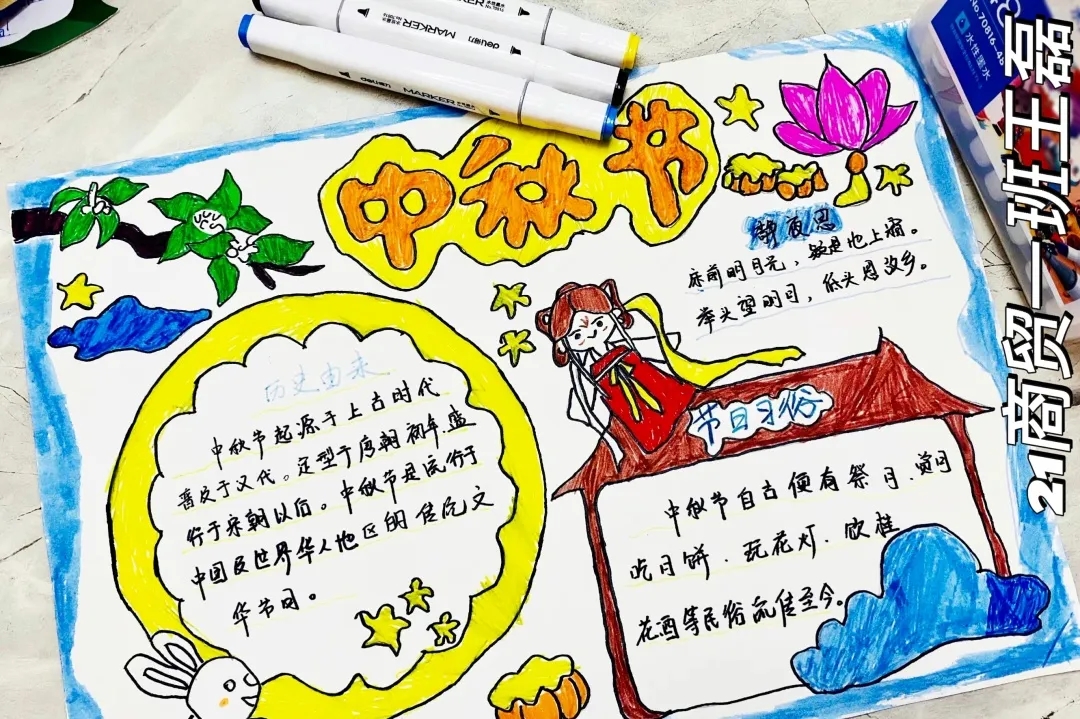 中秋节
静夜思
床前明月光，疑是地上霜。
举头望明月，低头思故乡。
历史由来
中秋节起源于上古时代
普及于汉代。定型于唐朝初年，盛
行于宋朝以后。中秋节是流行于
中国及世界华人地区的传统文
华节日。
节日习俗
中秋节自古便有祭月、赏月
吃月饼、玩花灯、饮桂
花酒等民俗流传至今。
MARKER
deli得力
MARKER
deli得力
No.70816-48
水性墨水
21商贸一班王磊